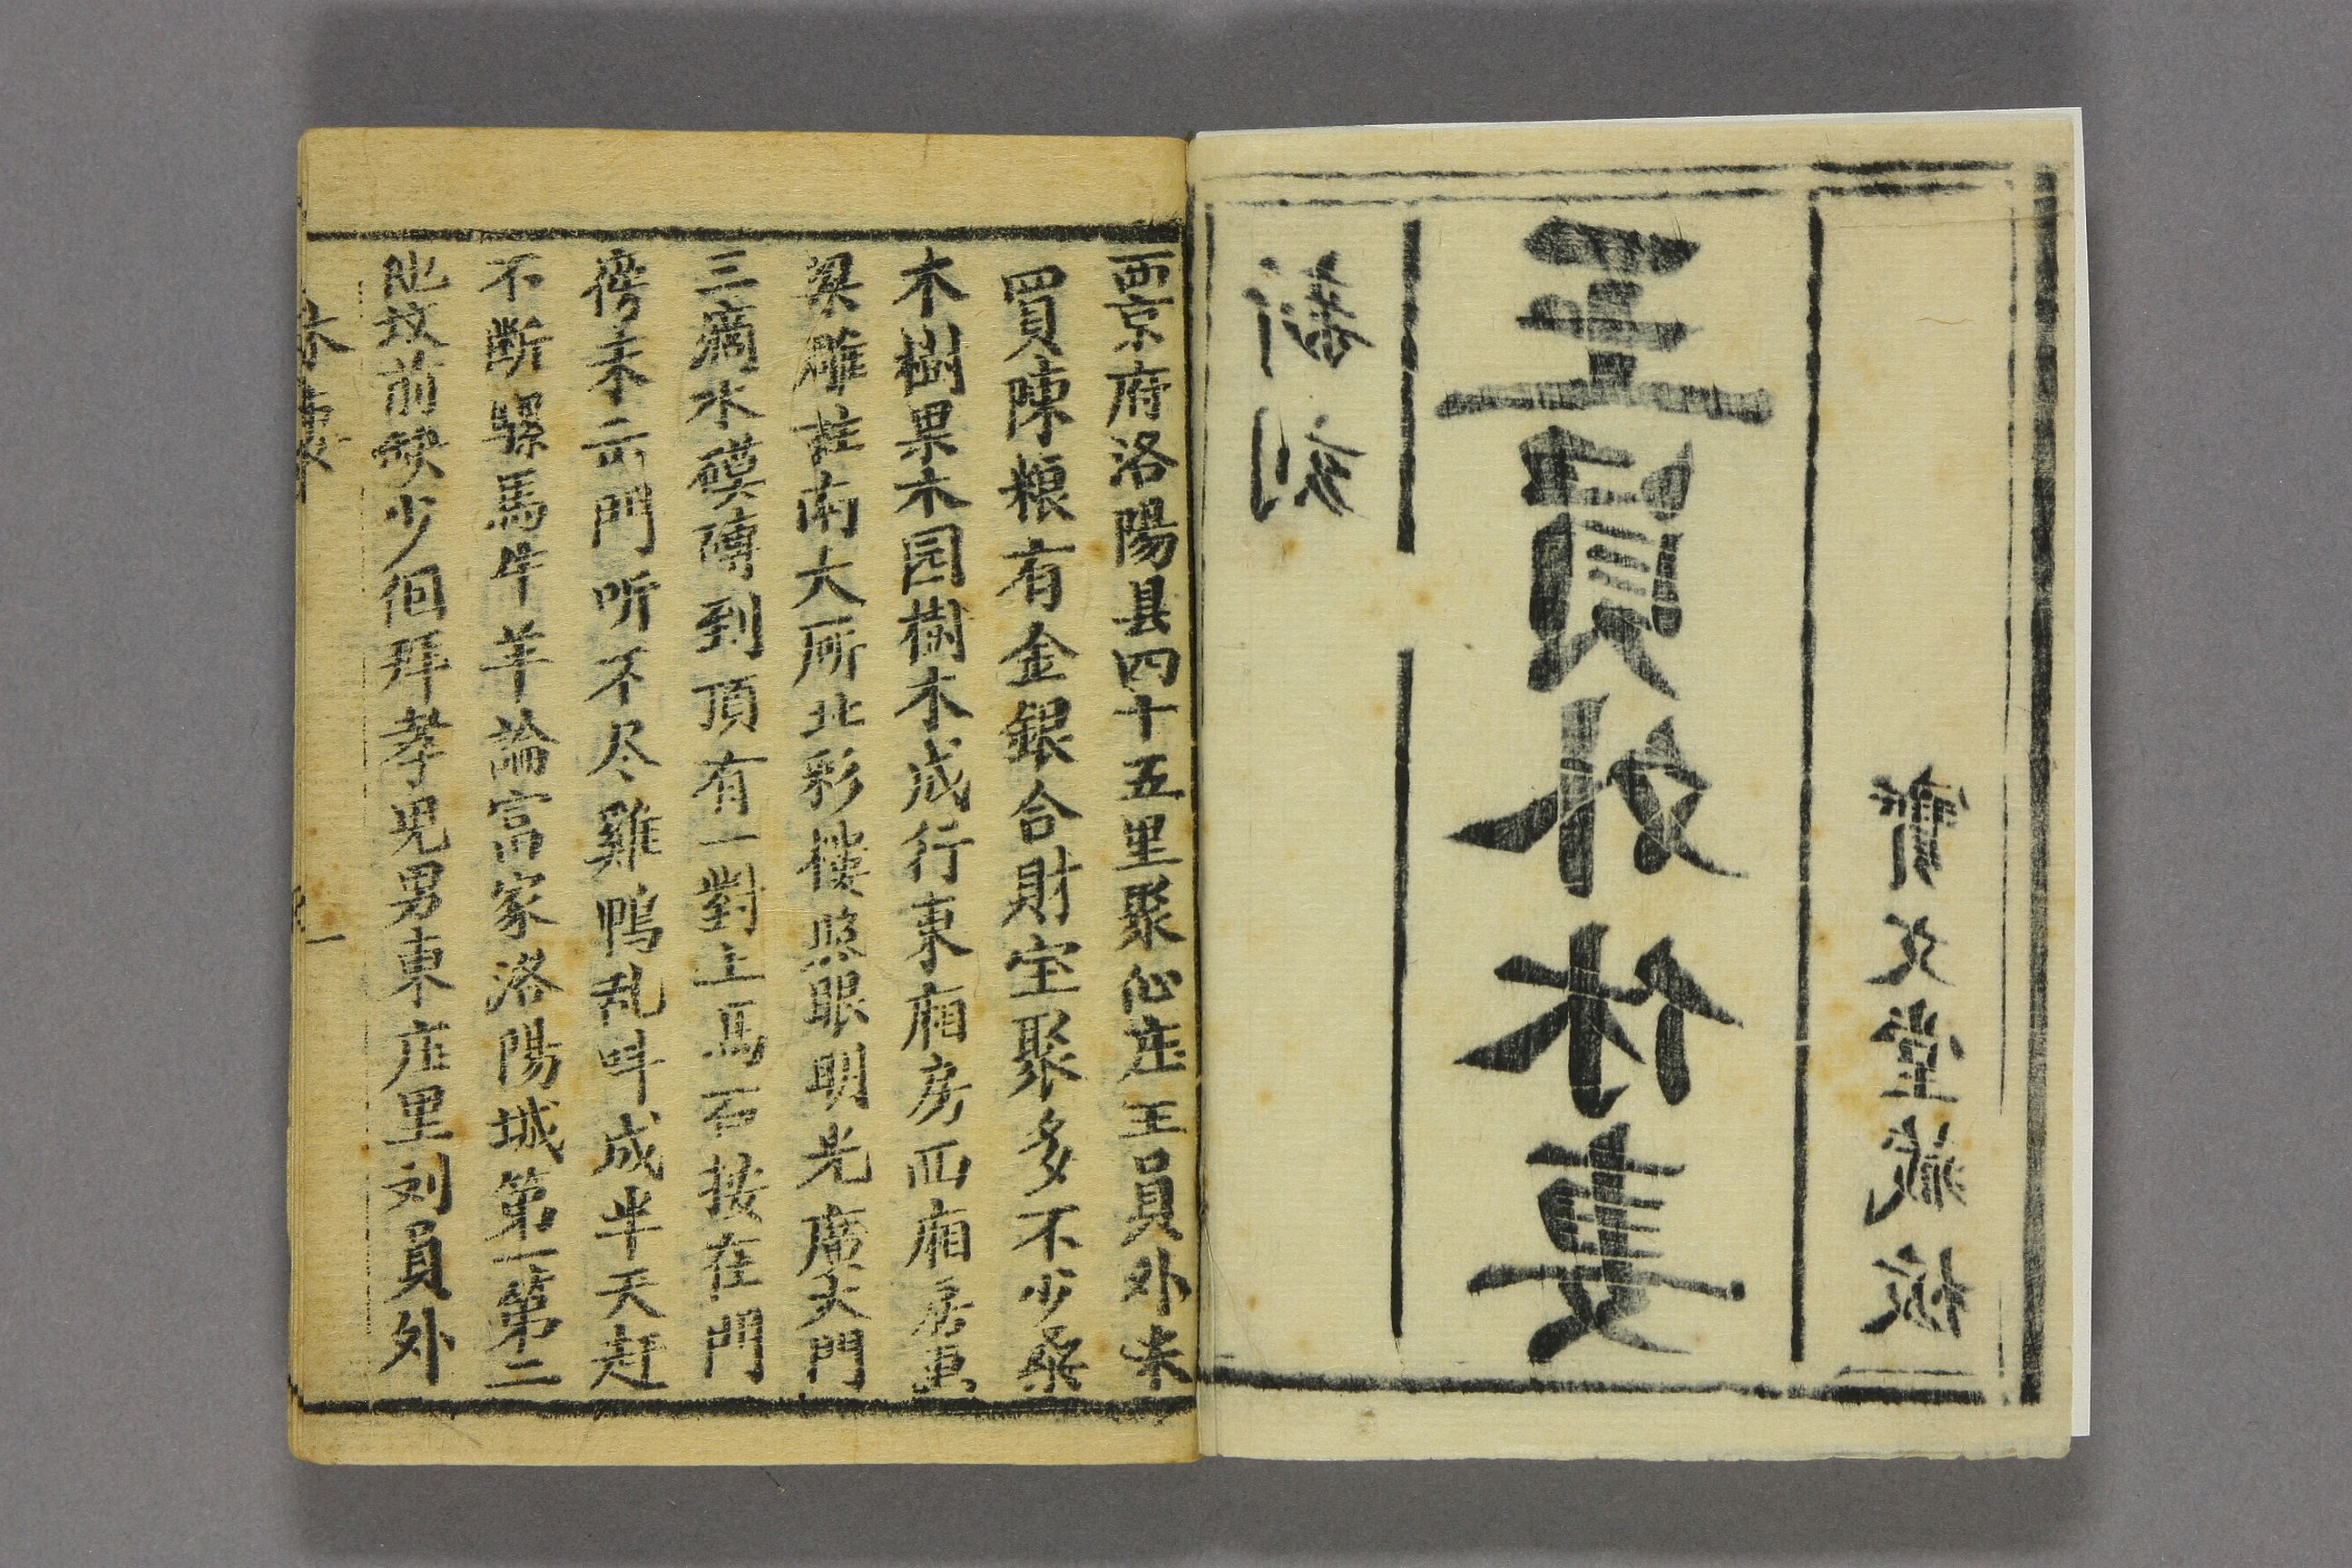 寶文堂藏板
王員外休妻
刻
西京府洛陽县四十五里聚仙庄王員外末
買陳粮有金銀合財宝聚多不少桑
木樹果木园樹木成行東廂房西廂房画
梁雕柱南大所北彩楼照眼明光廣大門
三滴水磚到頂有一對上馬石按在門
傍未云門听不尽雞鴨乱叫成半天赶
不断騾馬牛羊論富家洛陽城第一第二
他坟前缺少個拜孝児男東庄里刘員外
休妻
一